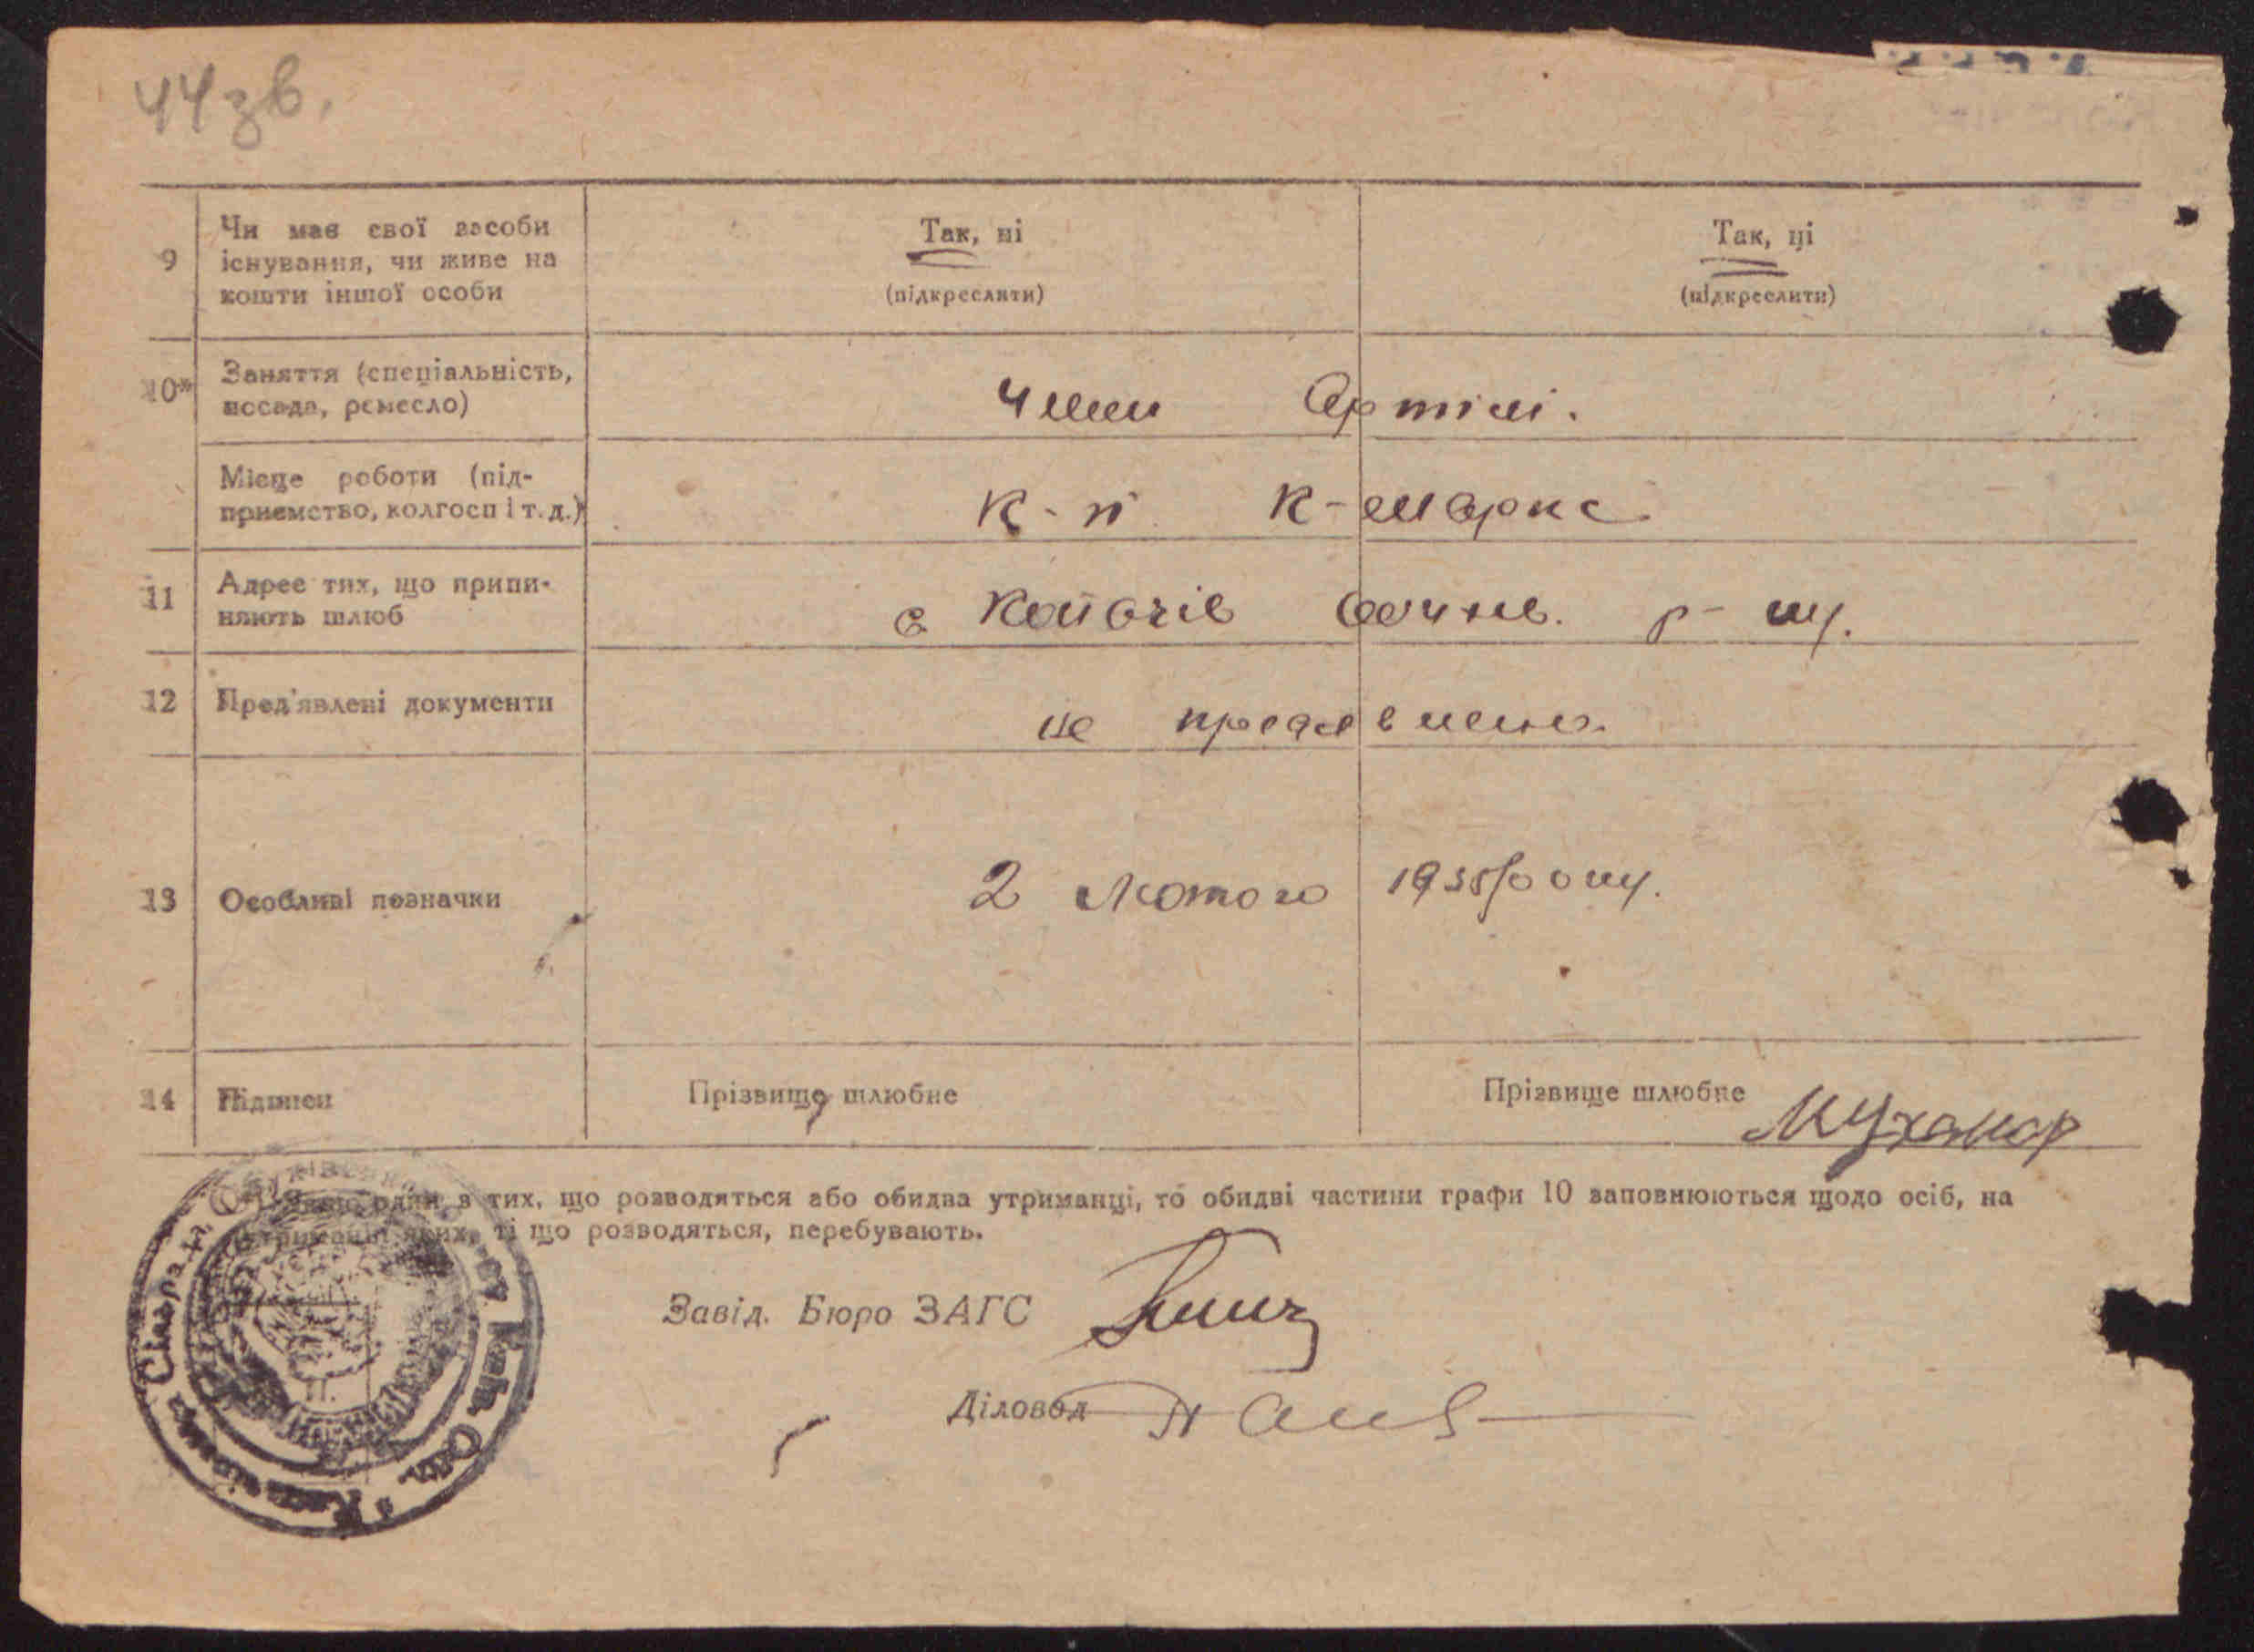 44 зв.
9 Чи має свої засоби існування, чи живе на кошти іншої особи
Так, ні
(підкреслити)
Так, ні
(підкреслити)
10* Заняття (спеціальність, посада, ремесло)
Член Артілі.
Місце роботи (підприємство, колгосп і т. д.)
К-п К-Маркс
11 Адреса тих, що припиняють шлюб
с Копачів р-ну.
12 Пред'явлені документи
не предявлено
13 Особливі позначки
2 Лютого 1938 року.
14 Підписи
Прізвище шлюбне
Прізвище шлюбне Мухамор
один з тих, що розводяться або обидва утриманці, то обидві частини графи 10 заповнюються щодо осіб, на
утриманні яких, ті що розводяться, перебувають.
Завід. Бюро ЗАГС
Діловод
Сільрада